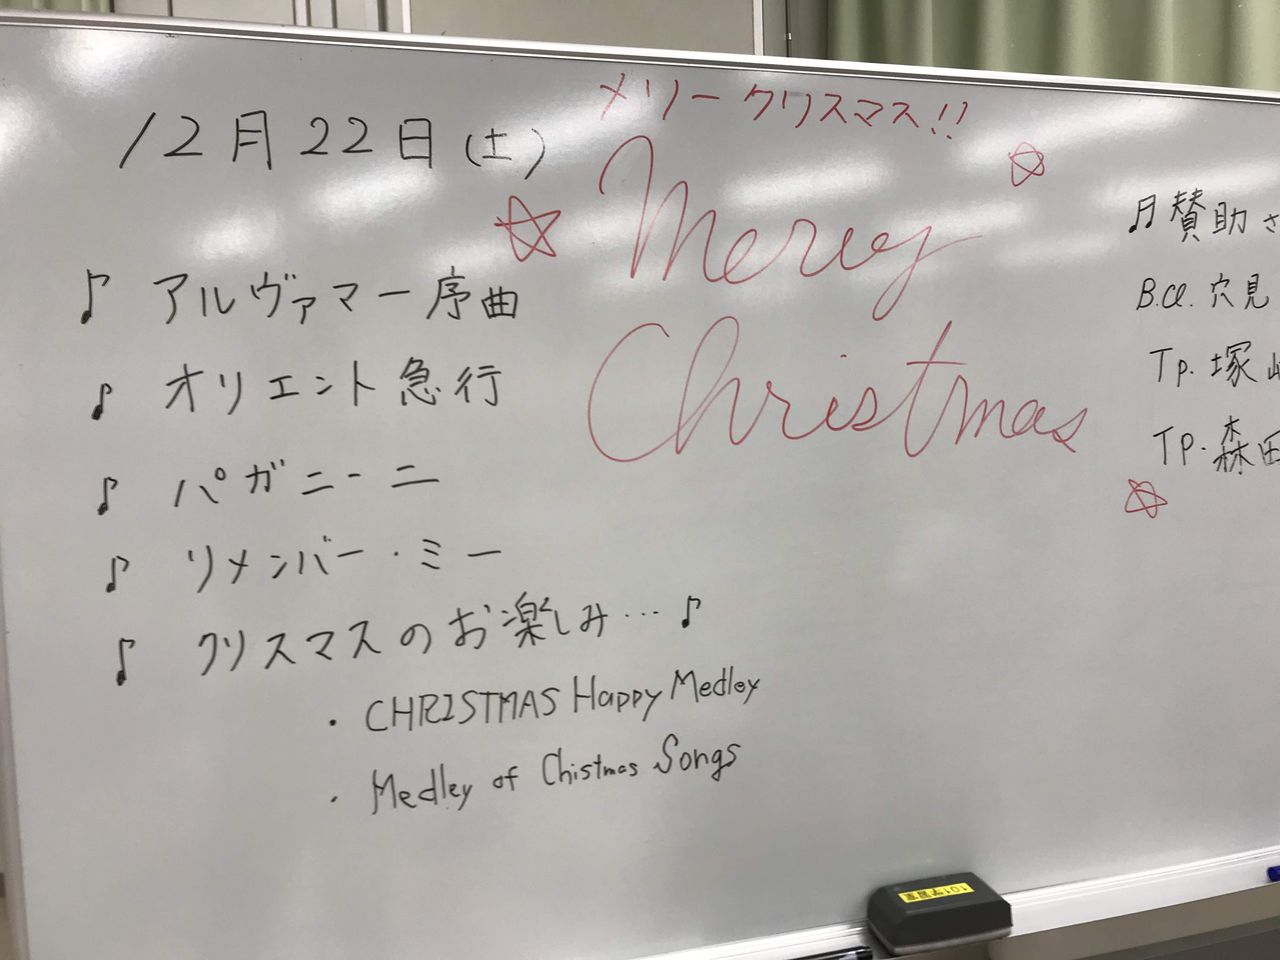 メリークリスマス!!
Merry
Christmas
12月22日(土)
♪ アルヴァマー序曲
♪ オリエント急行
♪ パガニーニ
♪ リメンバー・ミー
♪ クリスマスのお楽しみ…♪
・CHRISTMAS Happy Medley
・Medley of Chistmas Songs
♬ 賛助さ
B.Cl. 穴見
Tp. 塚
Tp. 森田
101学習室